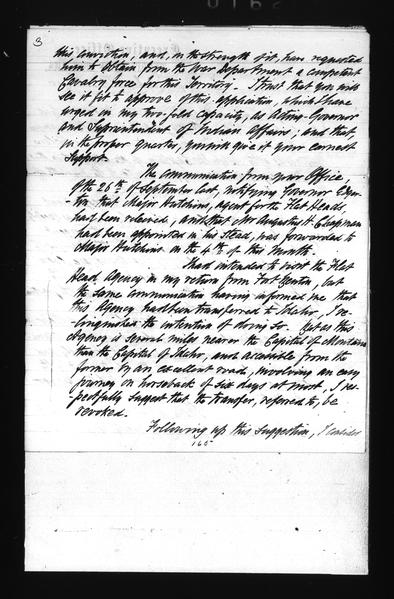 3
this conviction, and, in the strength of it, have requested
him to obtain from the War Department a competent
Cavalry force for this Territory. I trust that you will
see it fit to approve of this application, which I have
urged in my two-fold capacity, as Acting-Governor
and Superintendent of Indian Affairs; and that,
in the proper quarter, you will give it your earnest
support.
The communication from your Office
of the 26th of September last, notifying Governor Edger-
ton that Major Hutchins, agent for the Flat Heads,
had been relieved, and that Mr Augustus H. Chapman
had been appointed in his stead, was forwarded to
Major Hutchins on the 4th of this month.
I had intended to visit the Flat
Head Agency in my return from Fort Benton, but
the same communication having informed me that
this Agency had been transferred to Idaho, I re-
linquished the intention of doing so. But as this
Agency is several miles nearer the Capital of Montana
than the Capital of Idaho, and accessible from the
former by an excellent road, involving an easy
journey on horseback of six days at most, I res-
pectfully suggest that the transfer, referred to, be
revoked.
Following up this suggestion, I
165